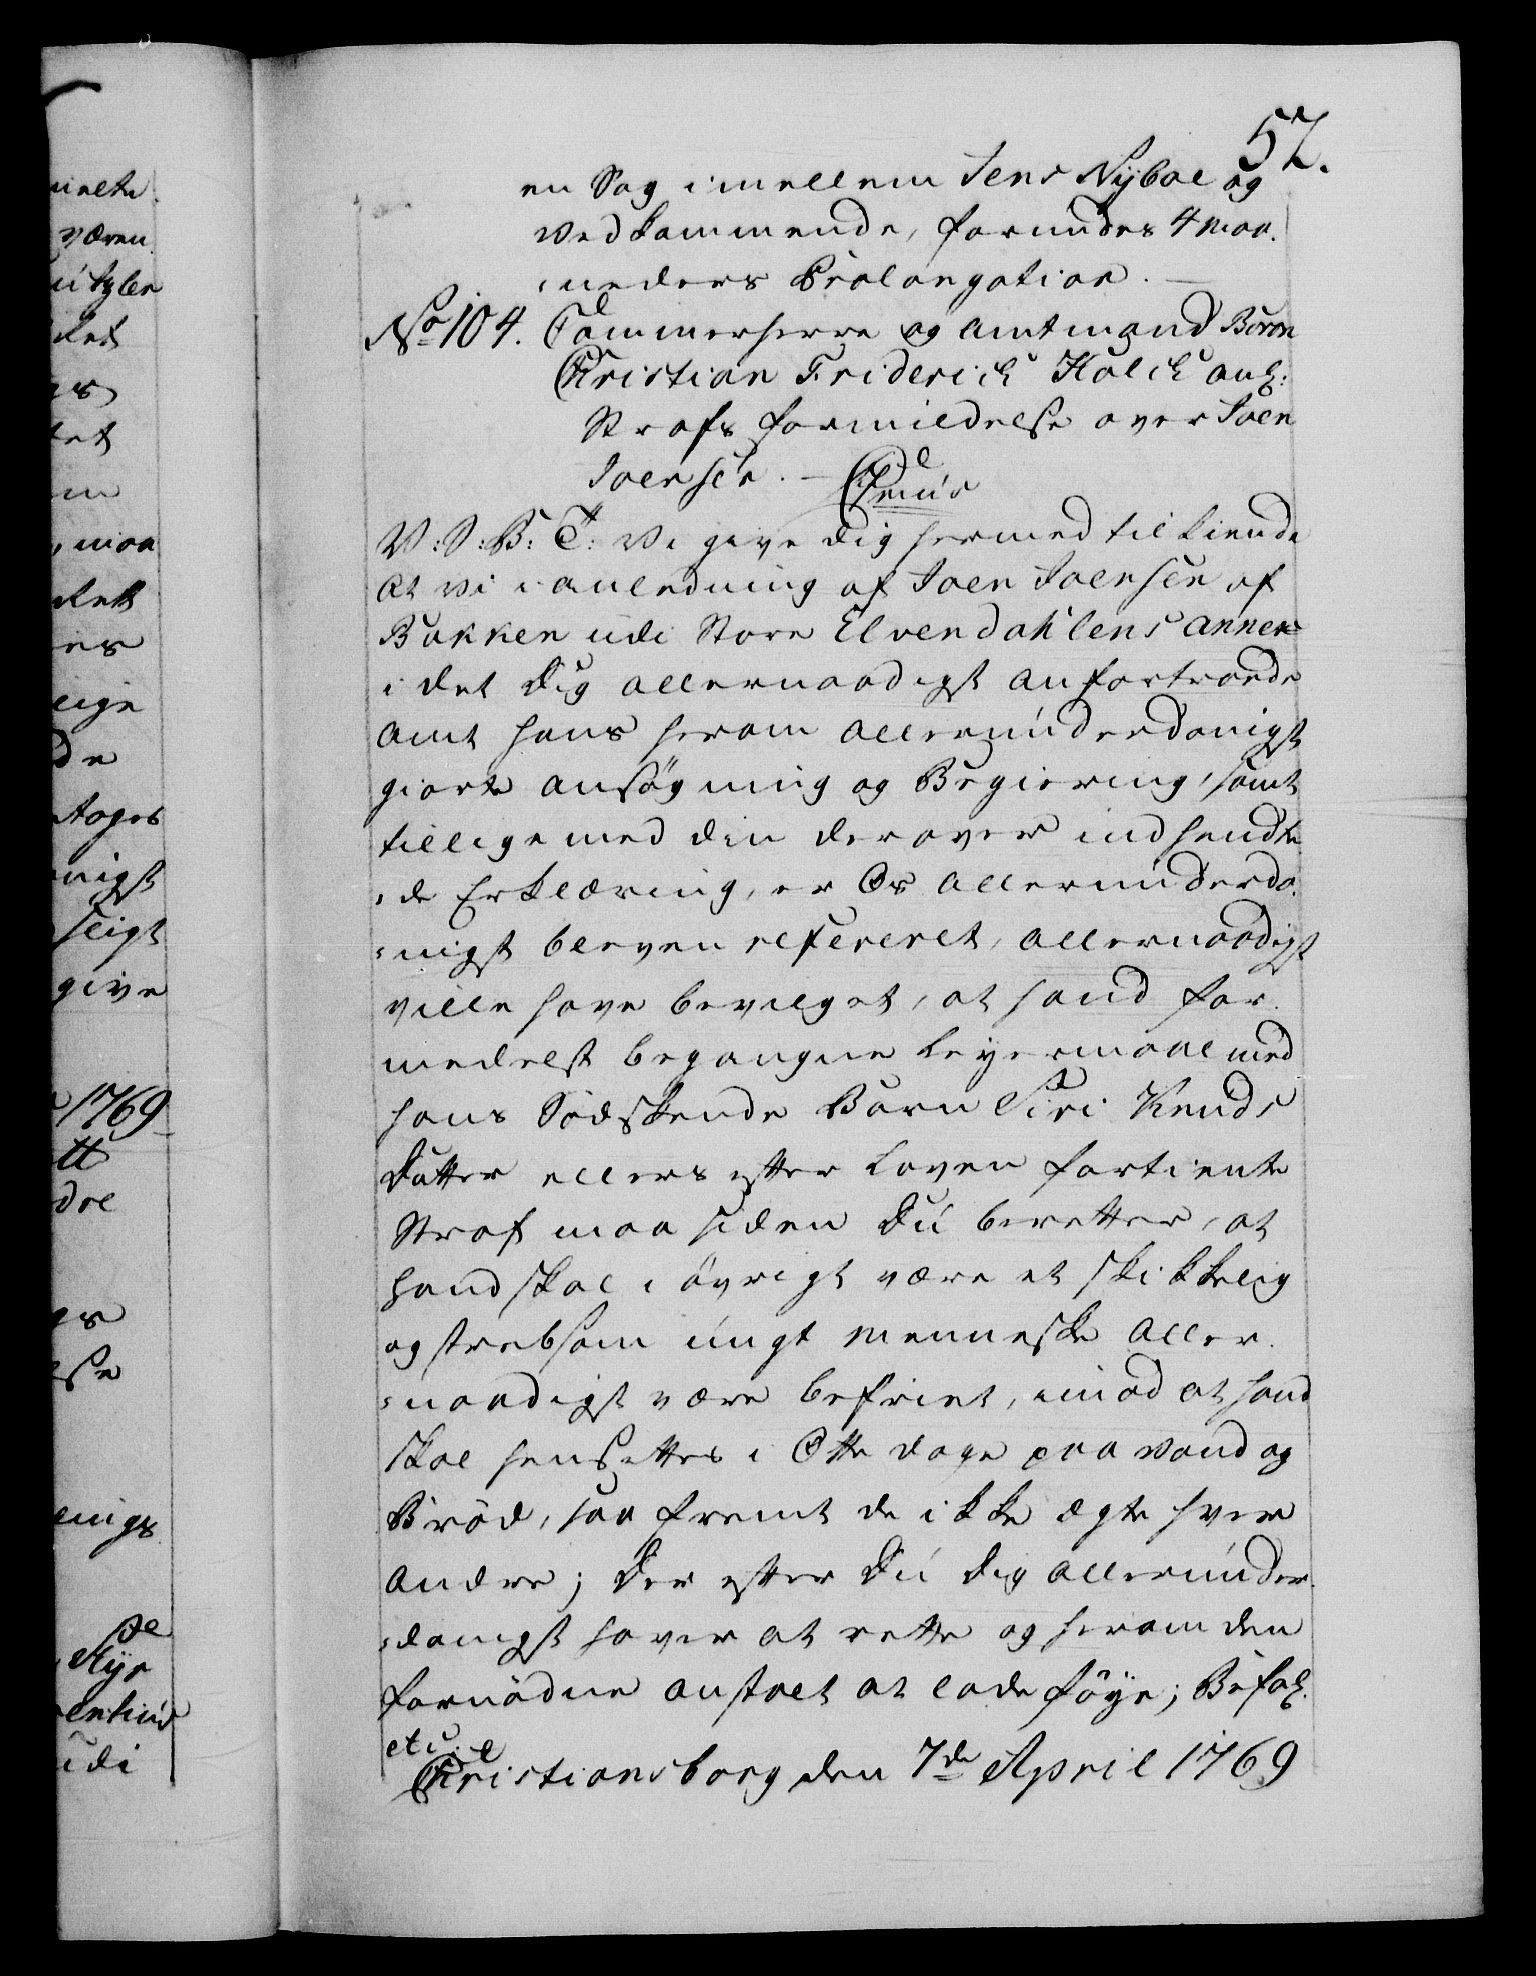 57.
en Sag imellem Jens Nÿboe og
Vedkommende, forundes 4 maa:
:neders Prolongation. —
No 104. Cammerherre og Amtmand Baron
Christian Friderich Holck ank:
Strafs formildelse over Joen
Joensen. —
V: S: B: T: Vi give dig hermed tilkiende
at vi i anledning af Joen Joensen af
Bakken udi Store Elvendahlens Annex
i det dig allernaadigst anfortroede
Amt hans herom allerunderdanigst
giorte ansøgning og Begiering, samt
tillige med din derover indsendte
:de Erklæring, er Os allerunderda:
:nigst bleven refereret, allernaadigst
ville have bevilget, at hand for
medelst begangne Leyermaal med
hans Sødskende Barn Siri Knuds
Datter ellers efter Loven fortiente
Straf maa siden Du beretter, at
hand skal i øvrigt være et skikkelig
og strebsom ungt menneske aller:
:naadigst være befriet, imod at hand
skal hensettes i Otte dage paa Vand og
Brød, saa fremt de ikke ægte hver
andre; Der efter Du dig allerunder:
:danigst haver at rette og herom den
fornødne anstalt at lade føye; Befal:
etc:
Christiansborg den 7de April 1769
melte
væren
ket
tet
maa
es
lige
de
tages
nigst
give
1769
tt
dre
lse
enigs
de
udi